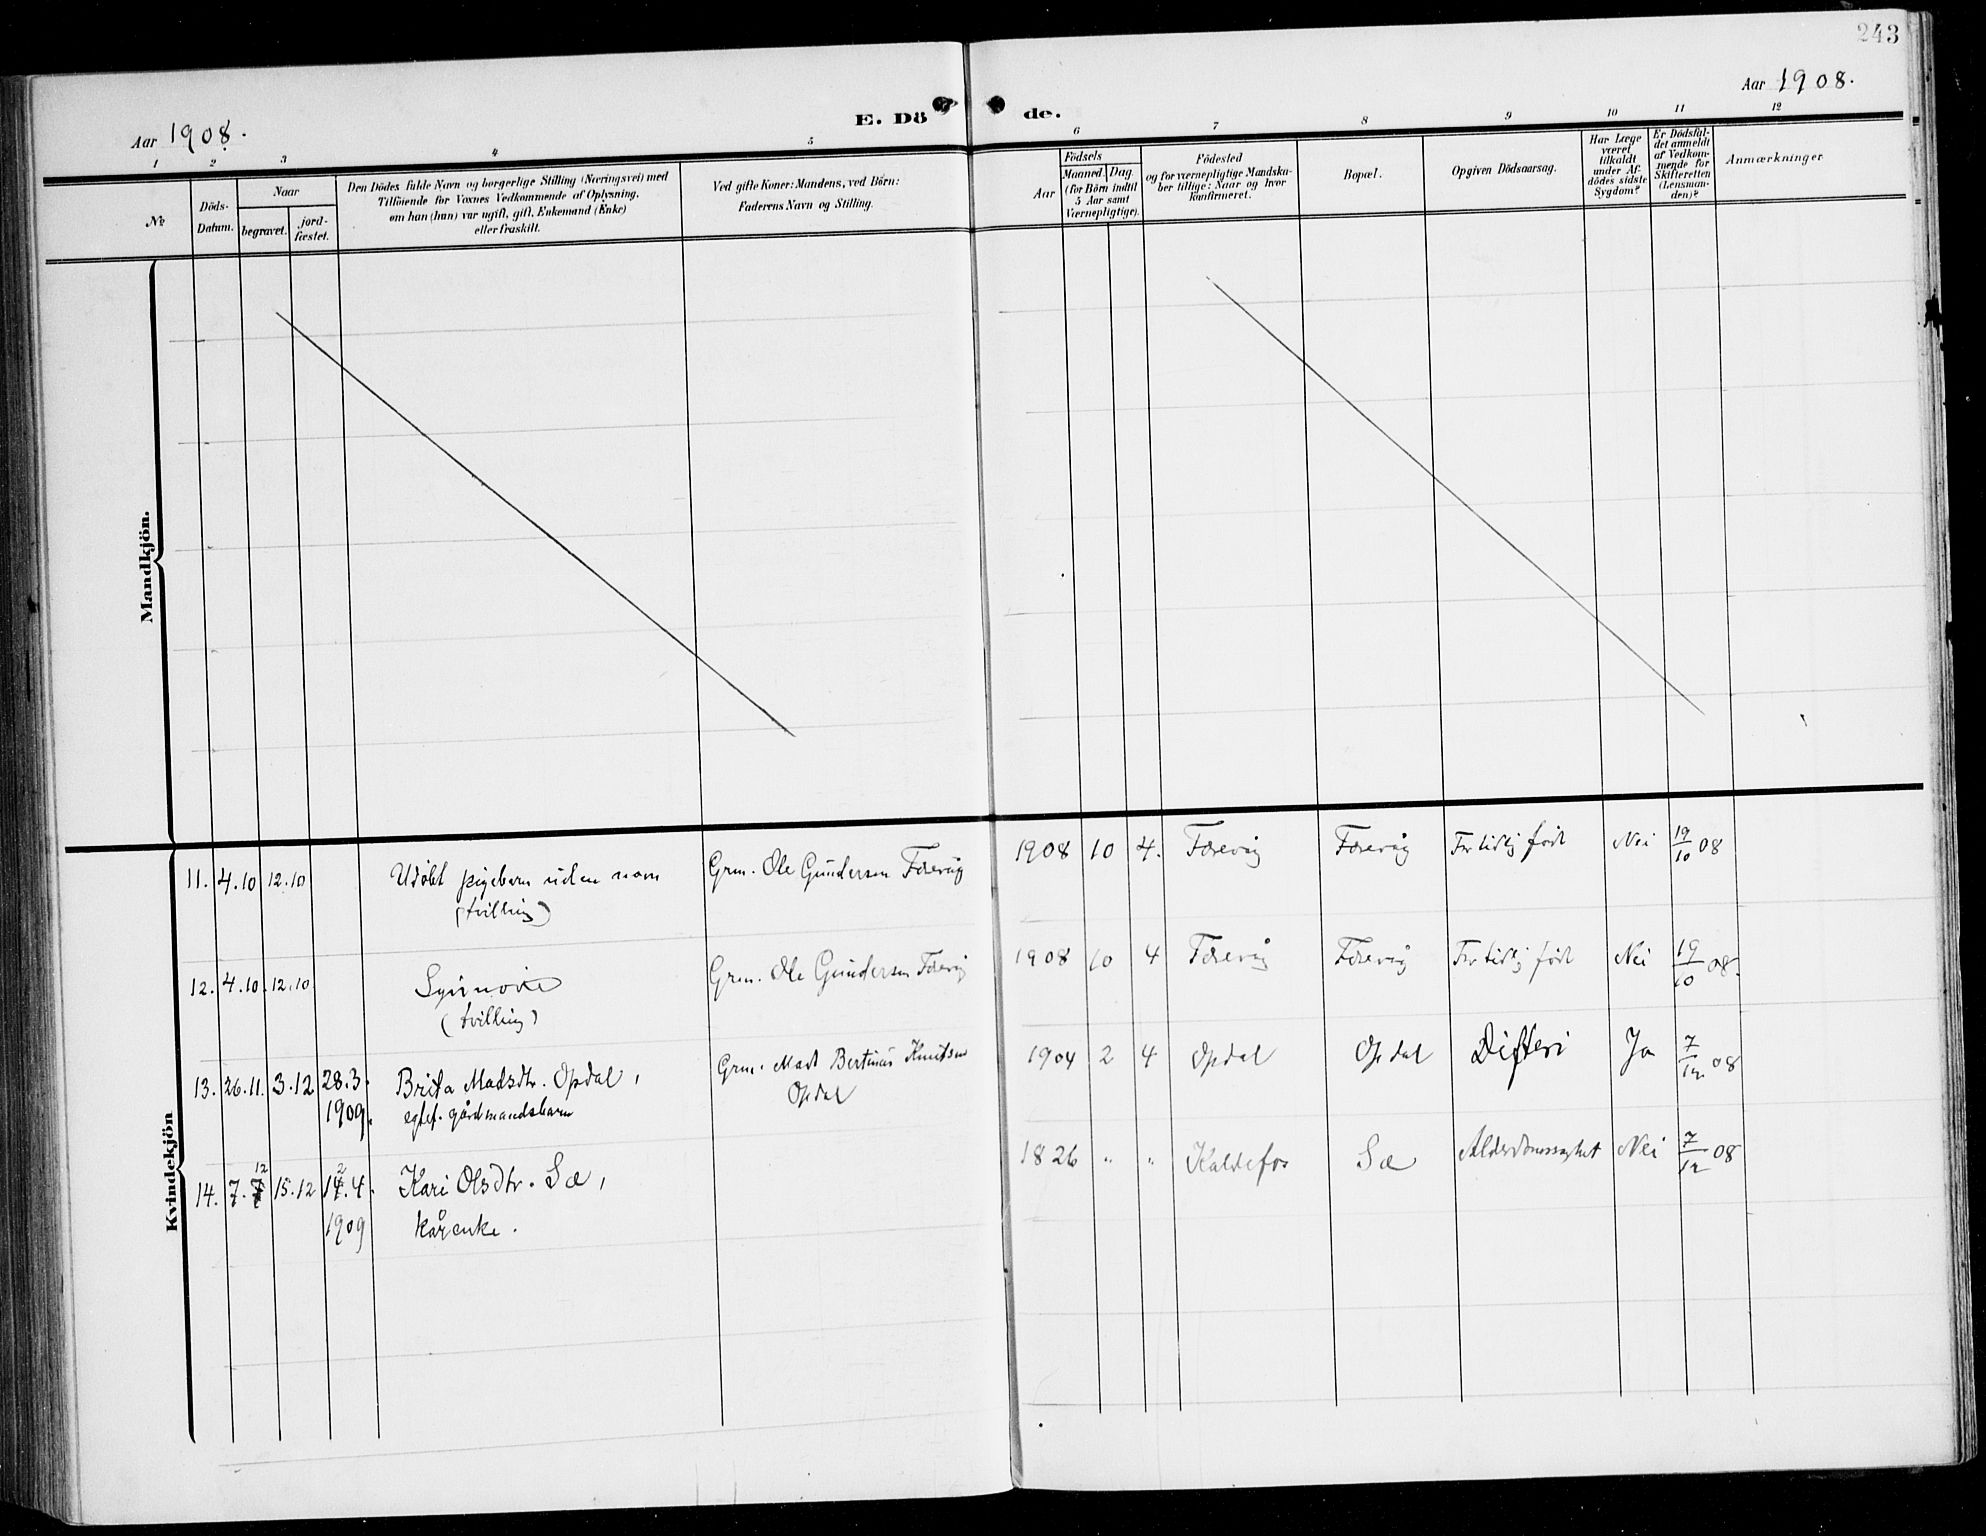 243
Aar 1908.
Aar 1908.
E. Dö de.
1 2 3 4 5 6 7 8 9 10 11 12
№
Döds-
Datum.
Naar
begravet.
jord-
fæstet.
Den Dödes fulde Navn og borgerlige Stilling (Næringsvei) med
Tilföiende for Voxnes Vedkommende af Oplysning,
om han (hun) var ugift, gift, Enkemand (Enke)
eller fraskilt.
Ved gifte Koner: Mandens, ved Börn:
Faderens Navn og Stilling.
Födsels
Aar
Maaned.
Dag.
(for Börn indtil
5 Aar samt
Værnepligtige).
Födested
og for værnepligtige Mandska-
ber tillige: Naar og hvor
konfirmeret.
Bopæl.
Opgiven Dödsaarsag.
Har Læge
været
tilkaldt
under Af-
dödes sidste
Sygdom?
Er Dödsfal-
det anmeldt
af Vedkom-
mende for
Skifteretten
(Lensman-
den)?
Anmærkninger
Mandkjön.
Kvindekjön
11. 4.10 12.10 Udöbt pigebarn uden navn Grm. Ole Gundersen 1908 10 4. For tidlig født Nei 19/10 08
(tvilling)
12. 4.10. 12.10 Synnøve Grm. Ole Gundersen 1908 10 4 For tidlig født Nei 19/10 08.
(tvilling)
13. 26.11. 3.12 28.3. Brita Madsdtr. Opdal, Grm. Mads Bertinus Knutsen 1904 2 4 Opdal Opdal Difteri Ja 7/12 08
1909. egtef. gårdmandsbarn Opdal
14. 7. 12 15.12 12.4. Kari Olsdtr. Sæ, 1826 " " Kaldefos Sæ Alderdomssvaghet Nei 7/12 08
1909 kårenke.